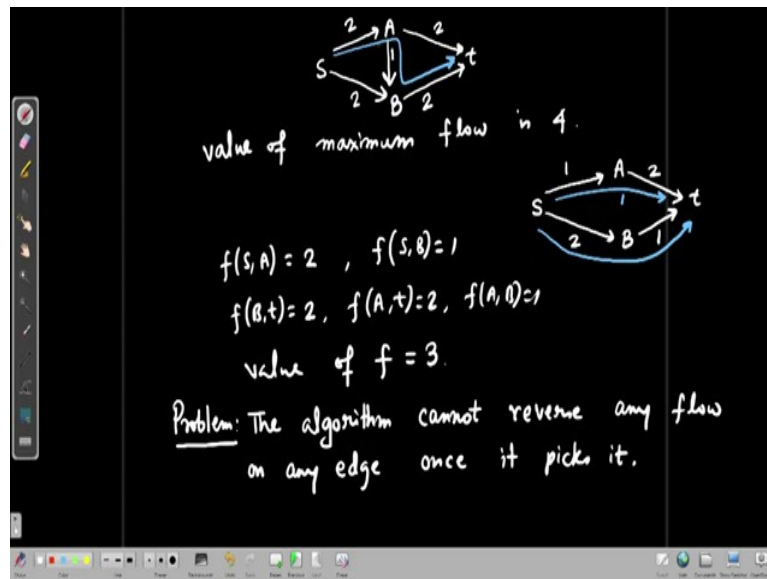 2 A 2
S 1 t
2 B 2
value of maximum flow is 4.
1 A 2
S 1 t
2 B 1
f(S,A) = 2 , f(S,B)=1
f(B,t)= 2, f(A,t)=2, f(A,B)=1
value of f = 3.
Problem: The algorithm cannot reverse any flow
on any edge once it picks it.